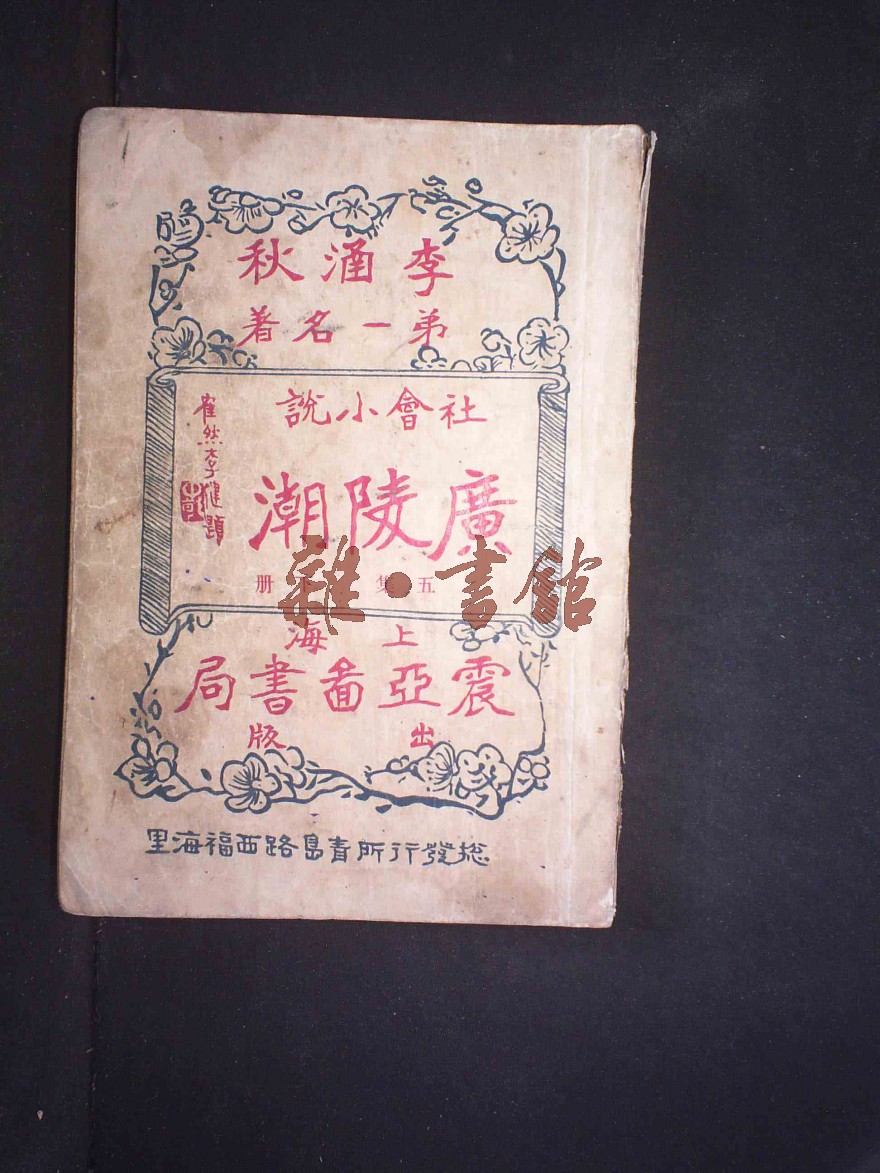 李涵秋
弟一名著
社會小說
廣陵潮
五集 册
崔然李健題
上海
震亞圖書局
出版
総發行所青島路西福海里
雜·書館